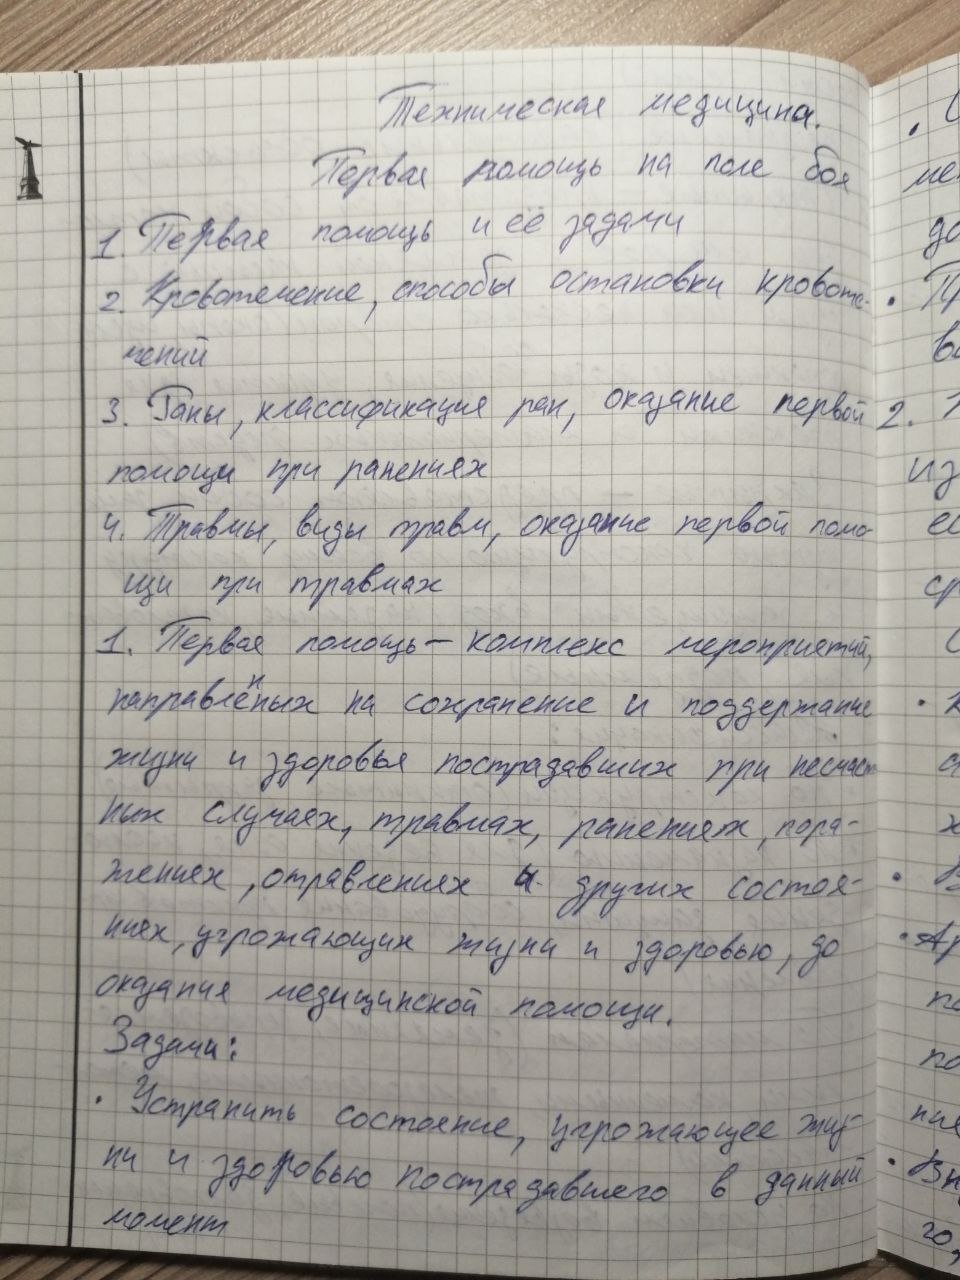 Техническая медицина.
Первая помощь на поле боя
1. Первая помощь и её задачи
2. Кровотечение, способы остановки кровоте-
чений
3. Раны, классификация ран, оказание первой
помощи при ранениях
4. Травмы, виды травм, оказание первой помо-
щи при травмах
1. Первая помощь – комплекс мероприятий,
направлённых на сохранение и поддержание
жизни и здоровья пострадавших при несчаст
ных случаях, травмах, ранениях, пора-
жениях, отравлениях и других состоя-
ниях, угрожающих жизни и здоровью, до
оказания медицинской помощи.
Задачи:
• Устранить состояние, угрожающее жиз-
ни и здоровью пострадавшего в данный
момент
2.
из